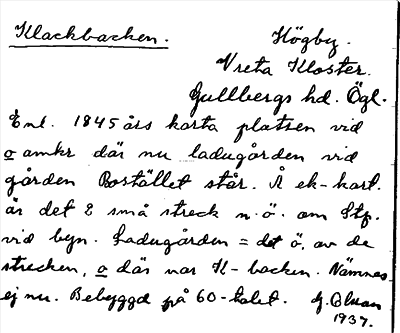 Klackbacken.
Högby.
Vreta Kloster.
Gullbergs hd. Ögl.
Enl. 1845 års karta platsen vid
o amkr där nu ladugården vid
gården Bostället står. Å ek-kart.
är det 2 små streck n.ö. om Stp.
vid byn. Ladugården = det ö. av de
strecken, o där var K-backen. Nämnes
ej nu. Bebyggd på 60-talet. G.
1937.